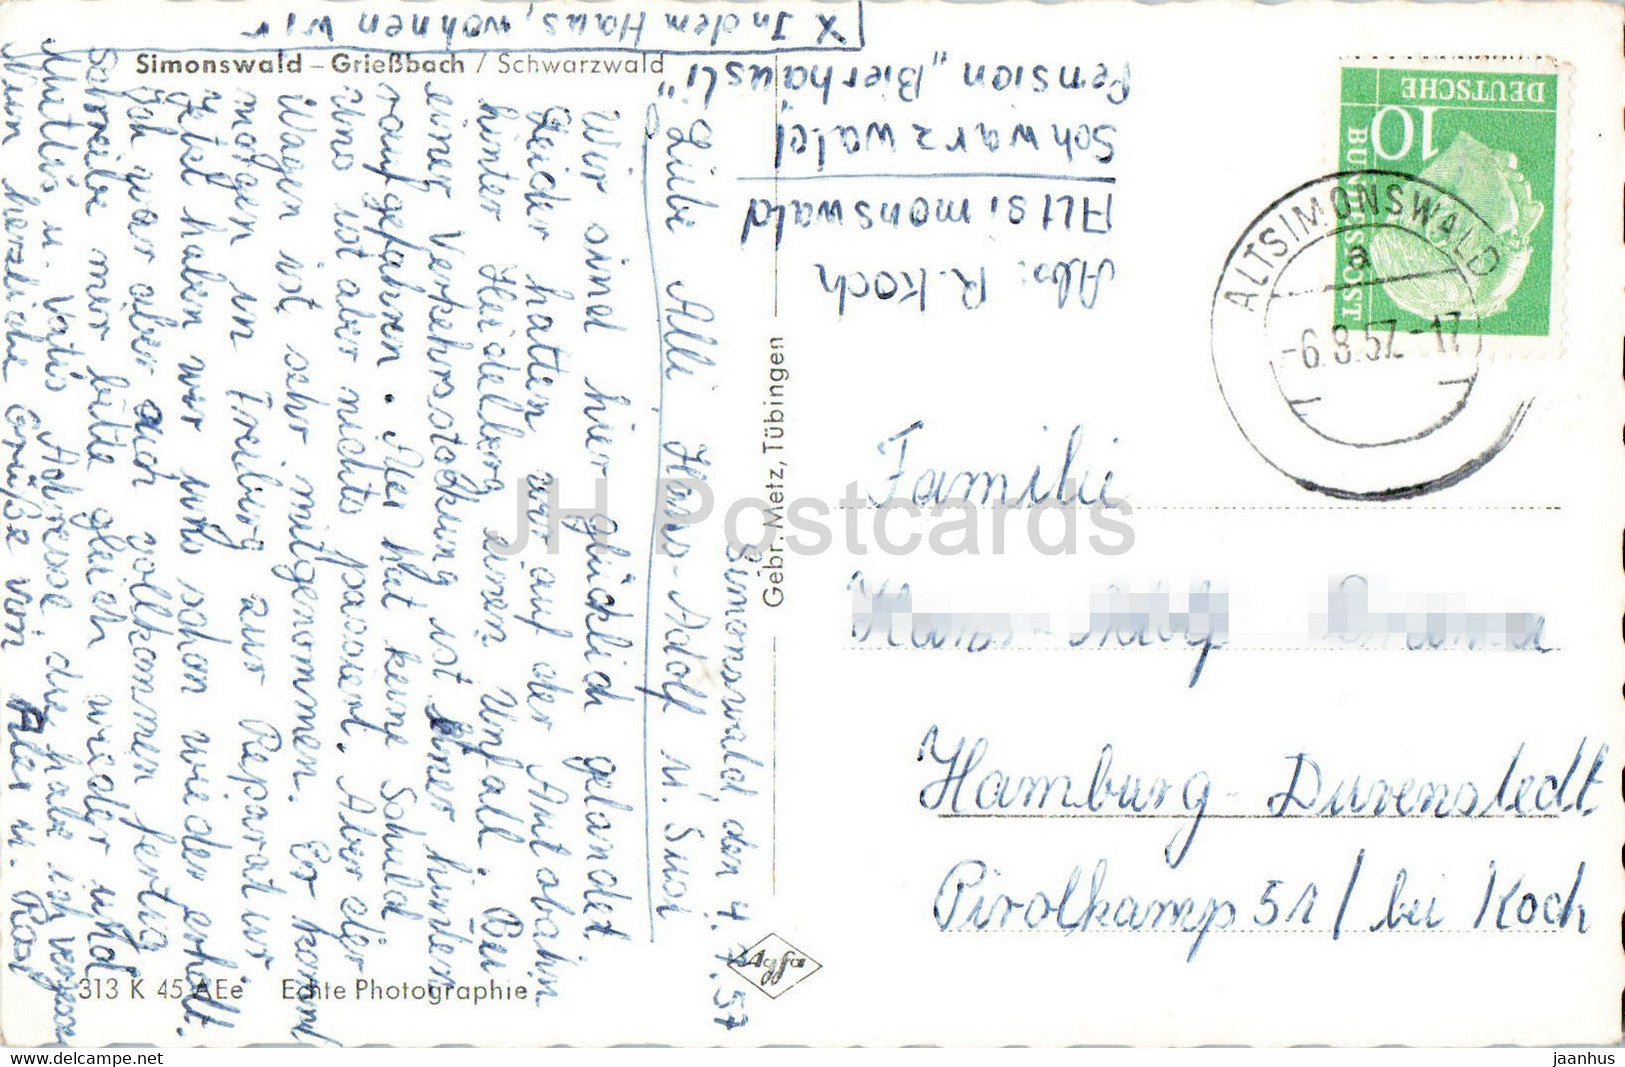 X In dem Haus, wohnen wir
Simonswald – Grießbach / Schwarzwald
Simonswald, den 4. 7. 57
Liebe Alli Hans-Adolf u. Susi
Wir sind hier glücklich gelandet.
Leider hatten wir auf der Autobahn
hinter Heidelberg einen Unfall. Bei
einer Verkehrsstockung ist einer hinten
raufgefahren. Alex hat keine Schuld
uns ist aber nichts passiert. Aber der
Wagen ist sehr mitgenommen. Er kommt
morgen in Freiburg zur Reparatur
jetzt haben wir uns schon wieder erholt.
Ich war aber auch vollkommen fertig
Schreibe mir bitte gleich wieder und
Mutti's u. Vati's Adresse, die habe ich
Nun herzliche Grüße von Alex u. Rosi
313 K 45 AEe Echte Photographie
Agfa
Gebr. Metz, Tübingen
Abs: R. Koch
Altsimonswald
Schwarzwald
Pension „Bierhäusli"
DEUTSCHE
BUNDESPOST
10
ALTSIMONSWALD
a
-6.8.57.-17
Familie
Hamburg-Duvenstedt
Pirolkamp 51 / bei Koch
JH Postcards
www.delcampe.net
jaanhus